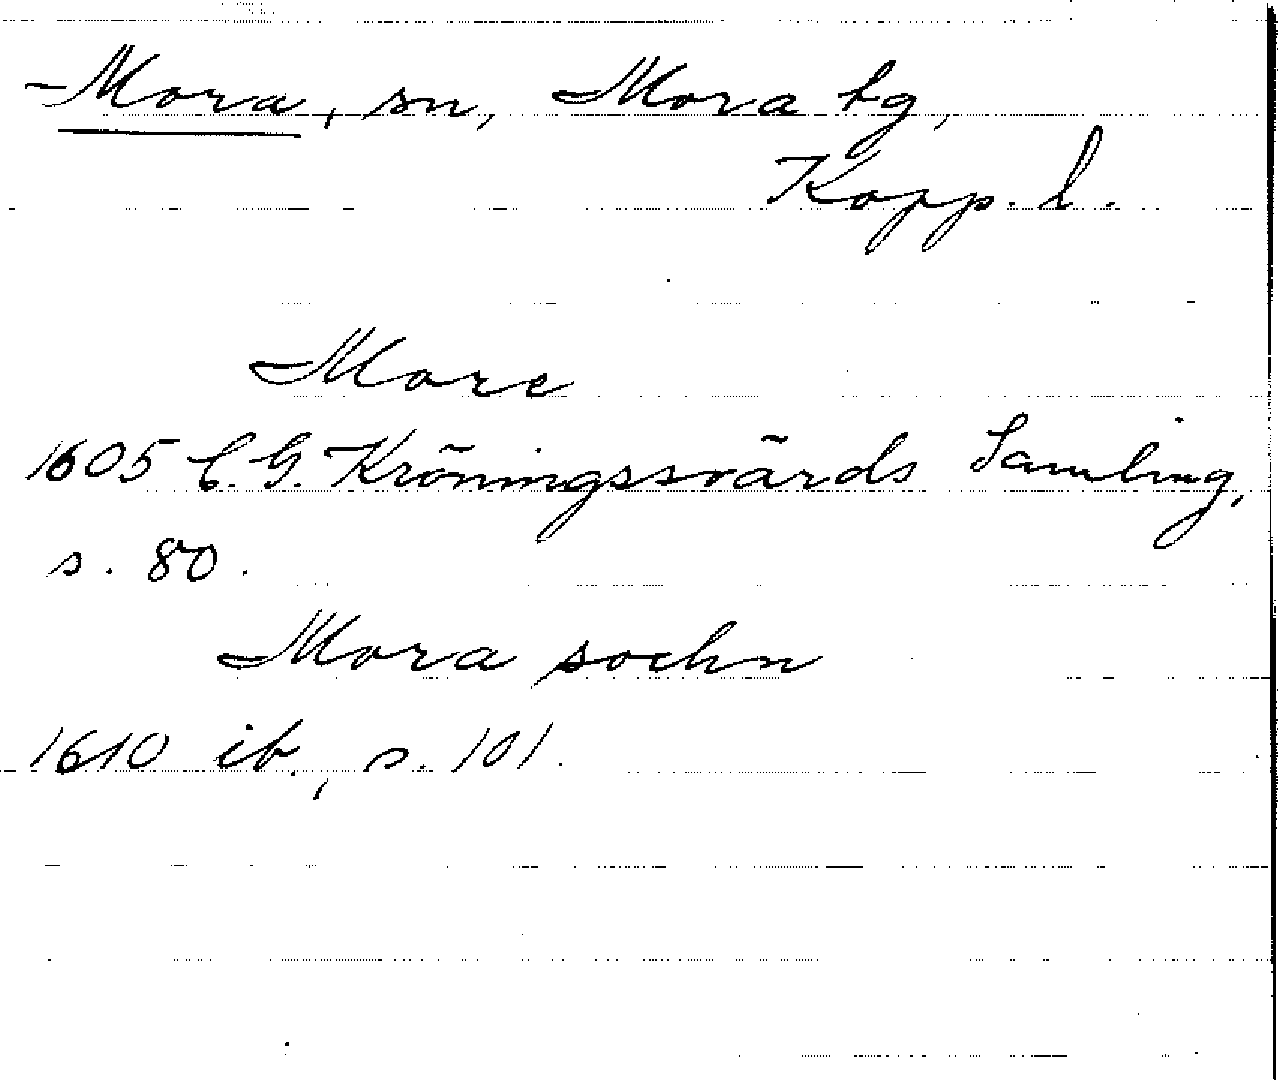 Mora, sn, Mora tg,
Kopp. l.
More
1605 C. G. Kröningssvärds Samling,
s. 80.
Mora sochn
1610 ib., s. 101.